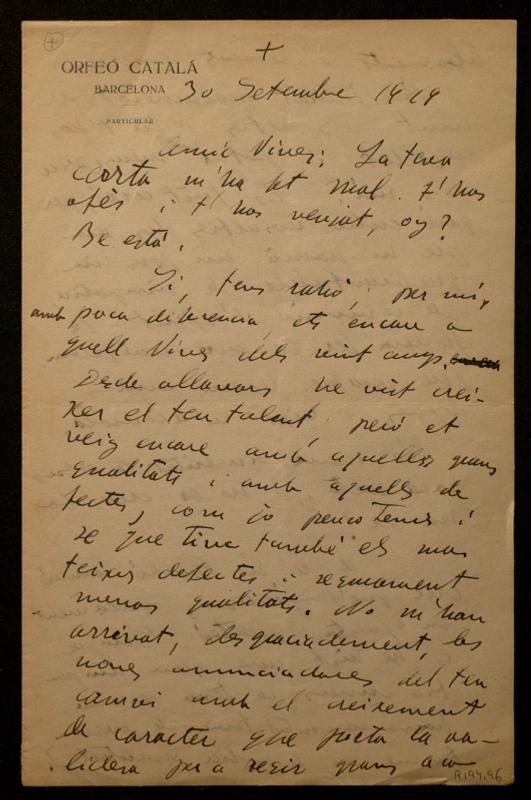 +
ORFEÓ CATALÁ
BARCELONA
PARTICULAR
30 Setembre 1919
Amic Vives: La teva
carta m'ha fet mal. T'has
ofés i t' has venjat, oy?
Be está.
Sí, tens rahó; per mí,
amb poca diferencia, ets encare a
quell Vives dels vint anys.
Desde allavors he vist crei-
xer el teu talent però et
veig encare amb aquelles grans
qualitats i amb aquells de
fectes, com jo penso tenir i
sé que tinc també els ma
teixos defectes i segurament
menos qualitats. No m'han
arrivat, desgraciadement, les
noves anunciadores del teu
camvi amb el creixement
de caracter que porta la va-
lidesa per a regir grans
R.194.96